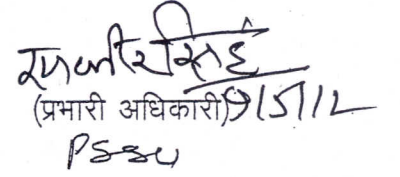 रणजीर सिंह
(प्रभारी अधिकारी) 9/5/12
PSSU